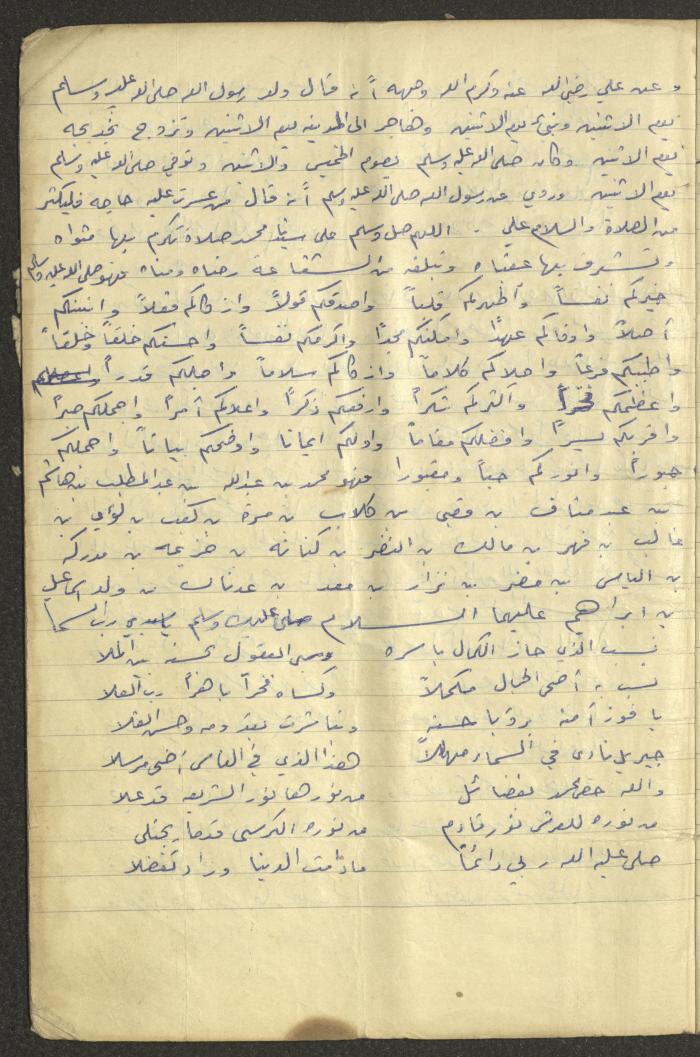 وعن علي رضي الله عنه وكرم الله وجهه أنه قال ولد رسول الله صلى الله عليه وسلم
يوم الاثنين ونبئ يوم الاثنين وهاجر الى المدينه يوم الاثنين وتزوج بخديجه
يوم الاثنين وكان صلى الله عليه وسلم يصوم الخميس والاثنين وتوفي صلى الله عليه وسلم
يوم الاثنين وروي عن رسول الله صلى الله عليه وسلم أنه قال من عسرت عليه حاجه فليكثر
من الصلاة والسلام علي . اللهم صل وسلم على سيدنا محمد صلاة تكرم بها مثواه
وتشرف بها عقباه وتبلغه من الشفاعة رضاه ومناه فهو صلى الله عليه وسلم
خيركم نفساً وأطهركم قلباً واصدقكم قولاً وازكاكم فعلاً واثبتكم
أصلاً واوفاكم عهداً وامكنكم مجداً واكرمكم نفساً واحسنكم خلقاً وخلقاً
واطيبكم فرعاً واحلاكم كلاماً وازكاكم سلاماً واجلكم قدراً
واعظمكم فخراً وأكثركم شكراً وارفعكم ذكراً واعلاكم أمراً واجملكم صبراً
واقربكم يسراً وافضلكم مقاماً واولكم ايمانا واوضحكم بياناً واجملكم
وقبورا فهو محمد بن عبدالله بن عبد المطلب بن هاشم
بن عبد مناف بن قصي بن كلاب بن مرة بن كعب بن لؤي بن
غالب بن فهر بن مالك بن النضر بن كنانه بن خزيمه بن مدركه
بن الياس بن مضر بن نزار بن معد بن عدنان من ولد اسماعيل
بن ابراهيم عليهما السلام صلى عليك وسلم يا سيدي رب السما
نسب الذي حاز الكمال باسره وسبى العقول بحسنه بين الملا
نسب به أضحى الجمال مكملاً وكساه فخراً باهراً رب العلا
يا فوز آمنه برؤيا حسنه وتباشرت بقدومه وحش الفلا
جبريل نادى في السماء مهللاً هذا الذي في الناس أضحى مرسلا
والله خص محمد بفضائل من نورها نور الشريعه قد علا
من نوره للعرش نور قادم من نوره الكرسى قدما يجتلى
صلى عليه الله ربي دائماً ما دامت الدنيا وزاد تفضلا